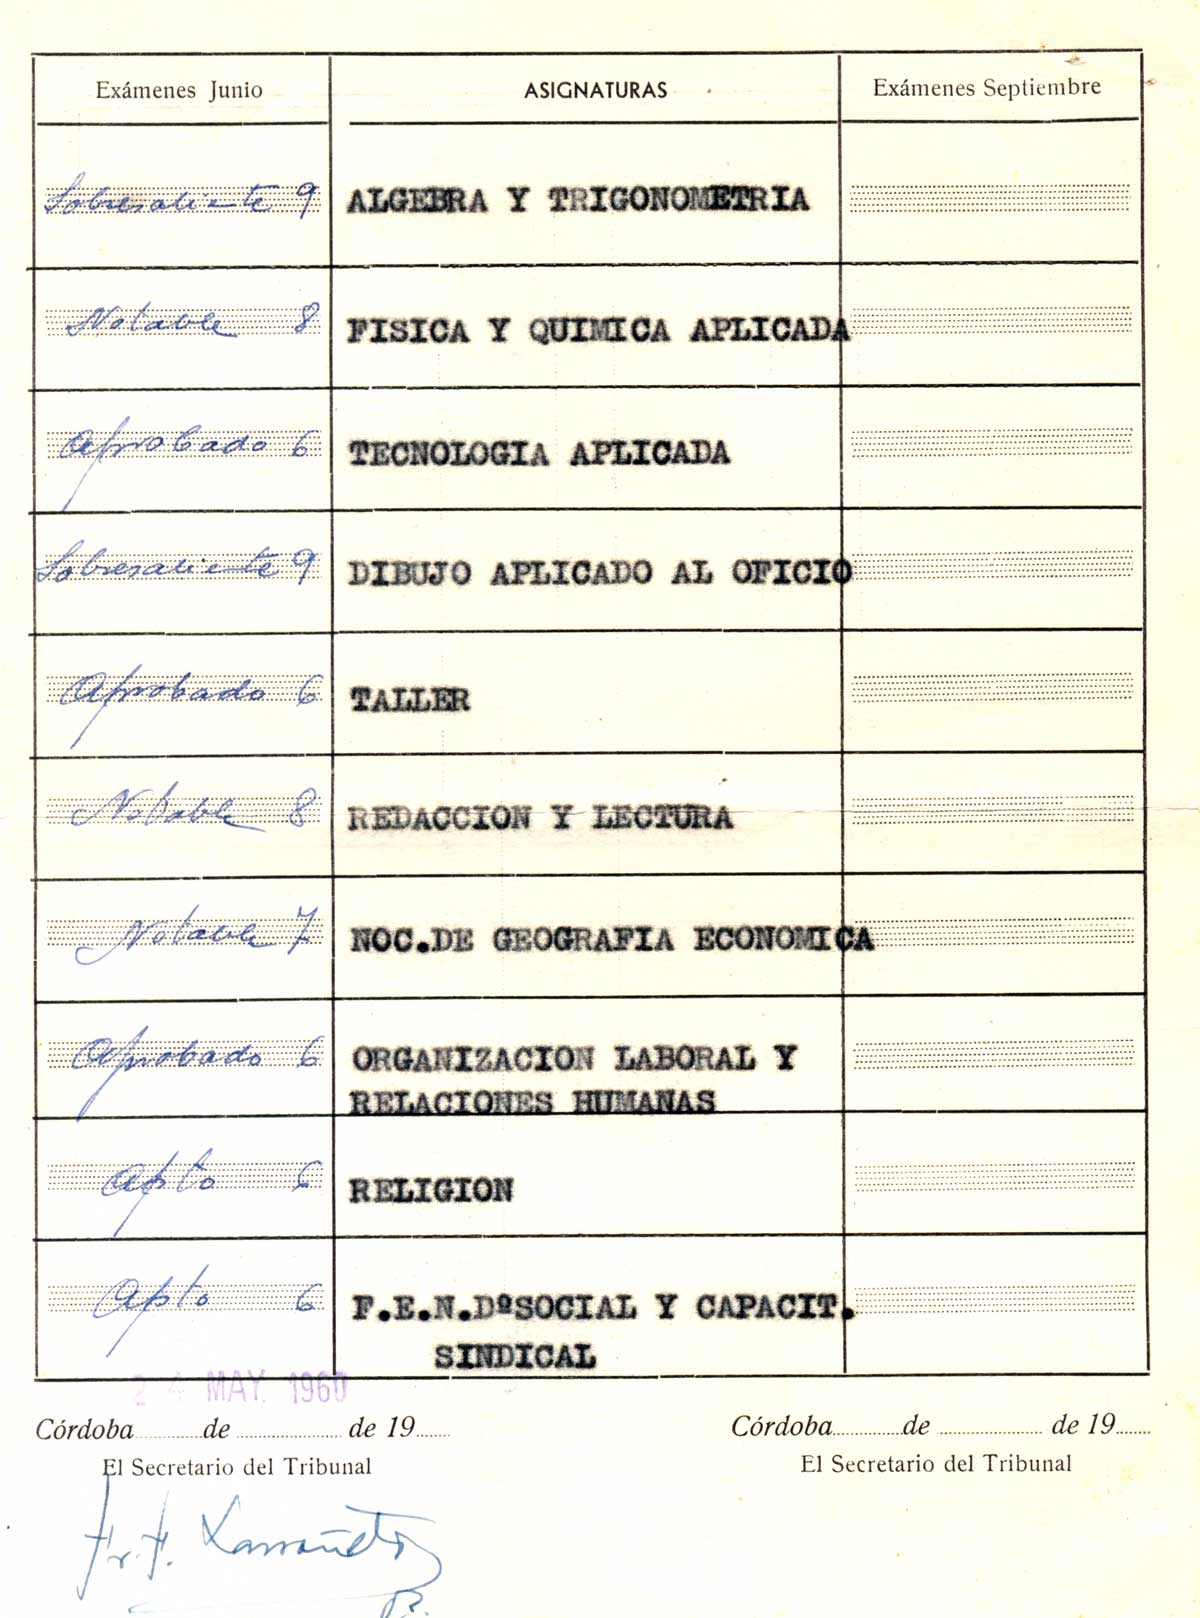 Exámenes Junio ASIGNATURAS Exámenes Septiembre
Sobresaliente 9 ALGEBRA Y TRIGONOMETRIA
Notable 8 FISICA Y QUIMICA APLICADA
Aprobado 6 TECNOLOGIA APLICADA
Sobresaliente 9 DIBUJO APLICADO AL OFICIO
Aprobado 6 TALLER
Notable 8 REDACCION Y LECTURA
Notable 7 NOC.DE GEOGRAFIA ECONOMICA
Aprobado 6 ORGANIZACION LABORAL Y
RELACIONES HUMANAS
Apto 6 RELIGION
Apto 6 F.E.N.DºSOCIAL Y CAPACIT.
SINDICAL
24 MAY. 1960
Córdoba de de 19 Córdoba de de 19
El Secretario del Tribunal El Secretario del Tribunal
Fr. F.